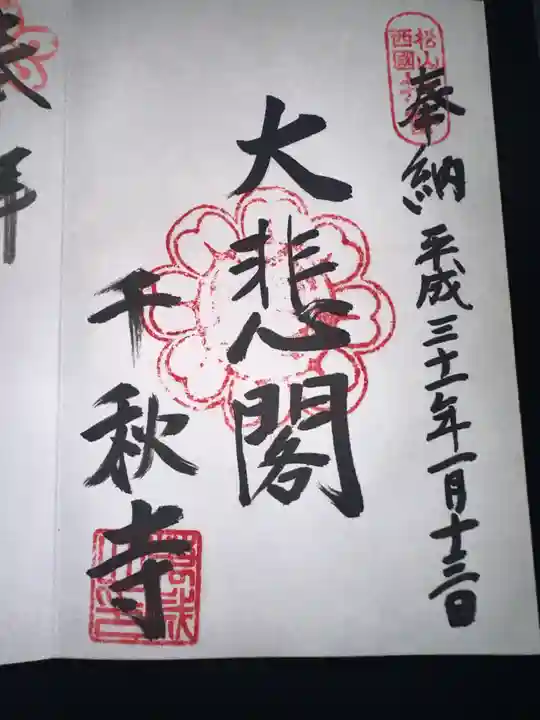 松山
西國
奉納 平成三十一年一月十三日
大悲閣
千秋寺
拝